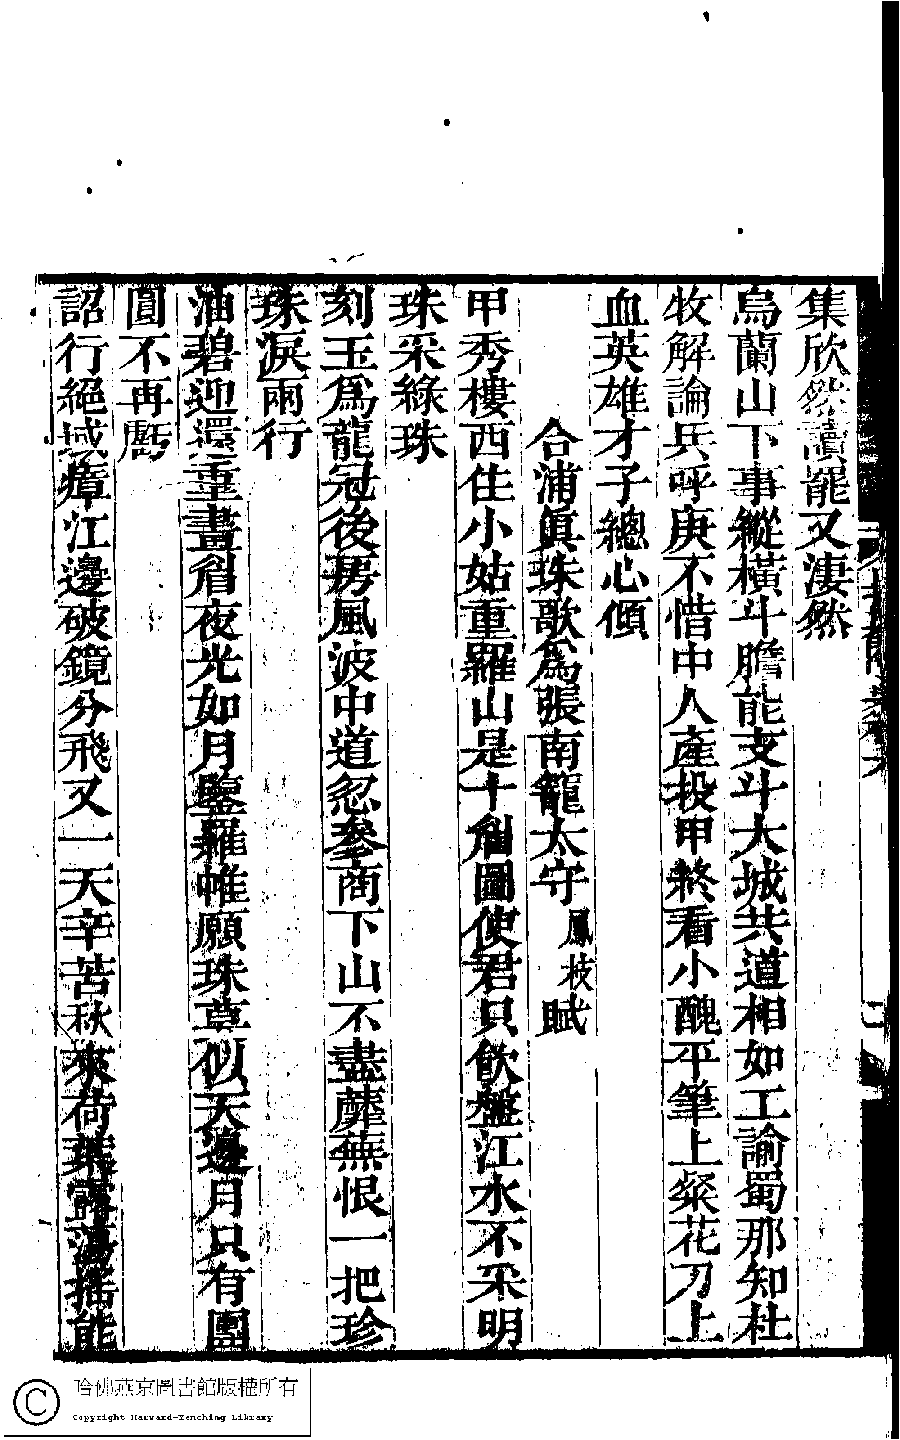 集欣然讀罷又淒然
烏蘭山下事縱橫斗膽能支斗大城共道相如工諭蜀那知杜
牧解論兵呼庚不惜中人產投甲終看小醜平筆上粲花刀上
血英雄才子總心傾
合浦眞珠歌爲張南籠太守鳳枝賦
甲秀樓西住小姑重羅山是十眉圖使君只飲盤江水不采明
珠采綠珠
刻玉爲龍冠後房風波中道忽參商下山不盡蘼蕪恨一把珍
珠淚兩行
油碧迎還重畫眉夜光如月鑒羅帷願珠莫似天邊月只有團
圓不再虧
詔行絕域瘴江邊破鏡分飛又一天辛苦秋來荷葉露蕩搖能
哈佛燕京圖書館版權所有
Copyright Harvard-Yenching Library